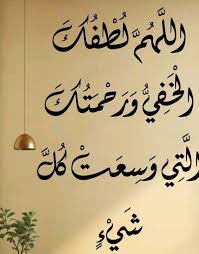 اللَّهُمَّ لُطْفُكَ
الْخَفِيُّ وَرَحْمَتُكَ
الَّتِي وَسِعَتْ كُلَّ
شَيْءٍ